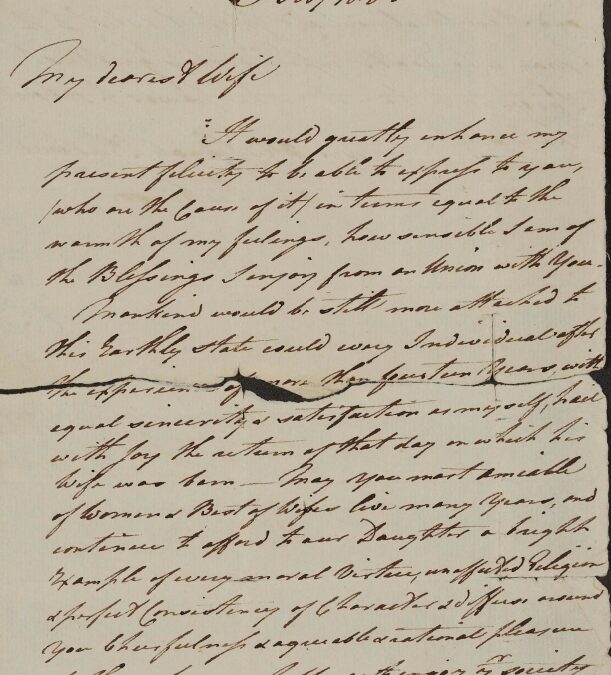 My dearest Wife
It would greatly enhance my
present felicity to be able to express to you,
(who are the Cause of it) in terms equal to the
warmth of my feelings, how sensible I am of
the Blessings I enjoy from an Union with You.
Mankind would be still more attached to
this Earthly State could every Individual after
the experience of more than fourteen Years, with
equal sincerity & satisfaction as myself, hail
with Joy the return of that day on which his
Wife was born — May you most amiable
of Women & Best of Wifes live many Years, and
continue to afford to our Daughter a bright
Example of every moral Virtue, unaffected Religion
& perfect Consistency of Character & diffuse around
you Cheerfulness & agreeable & rational pleasure
society